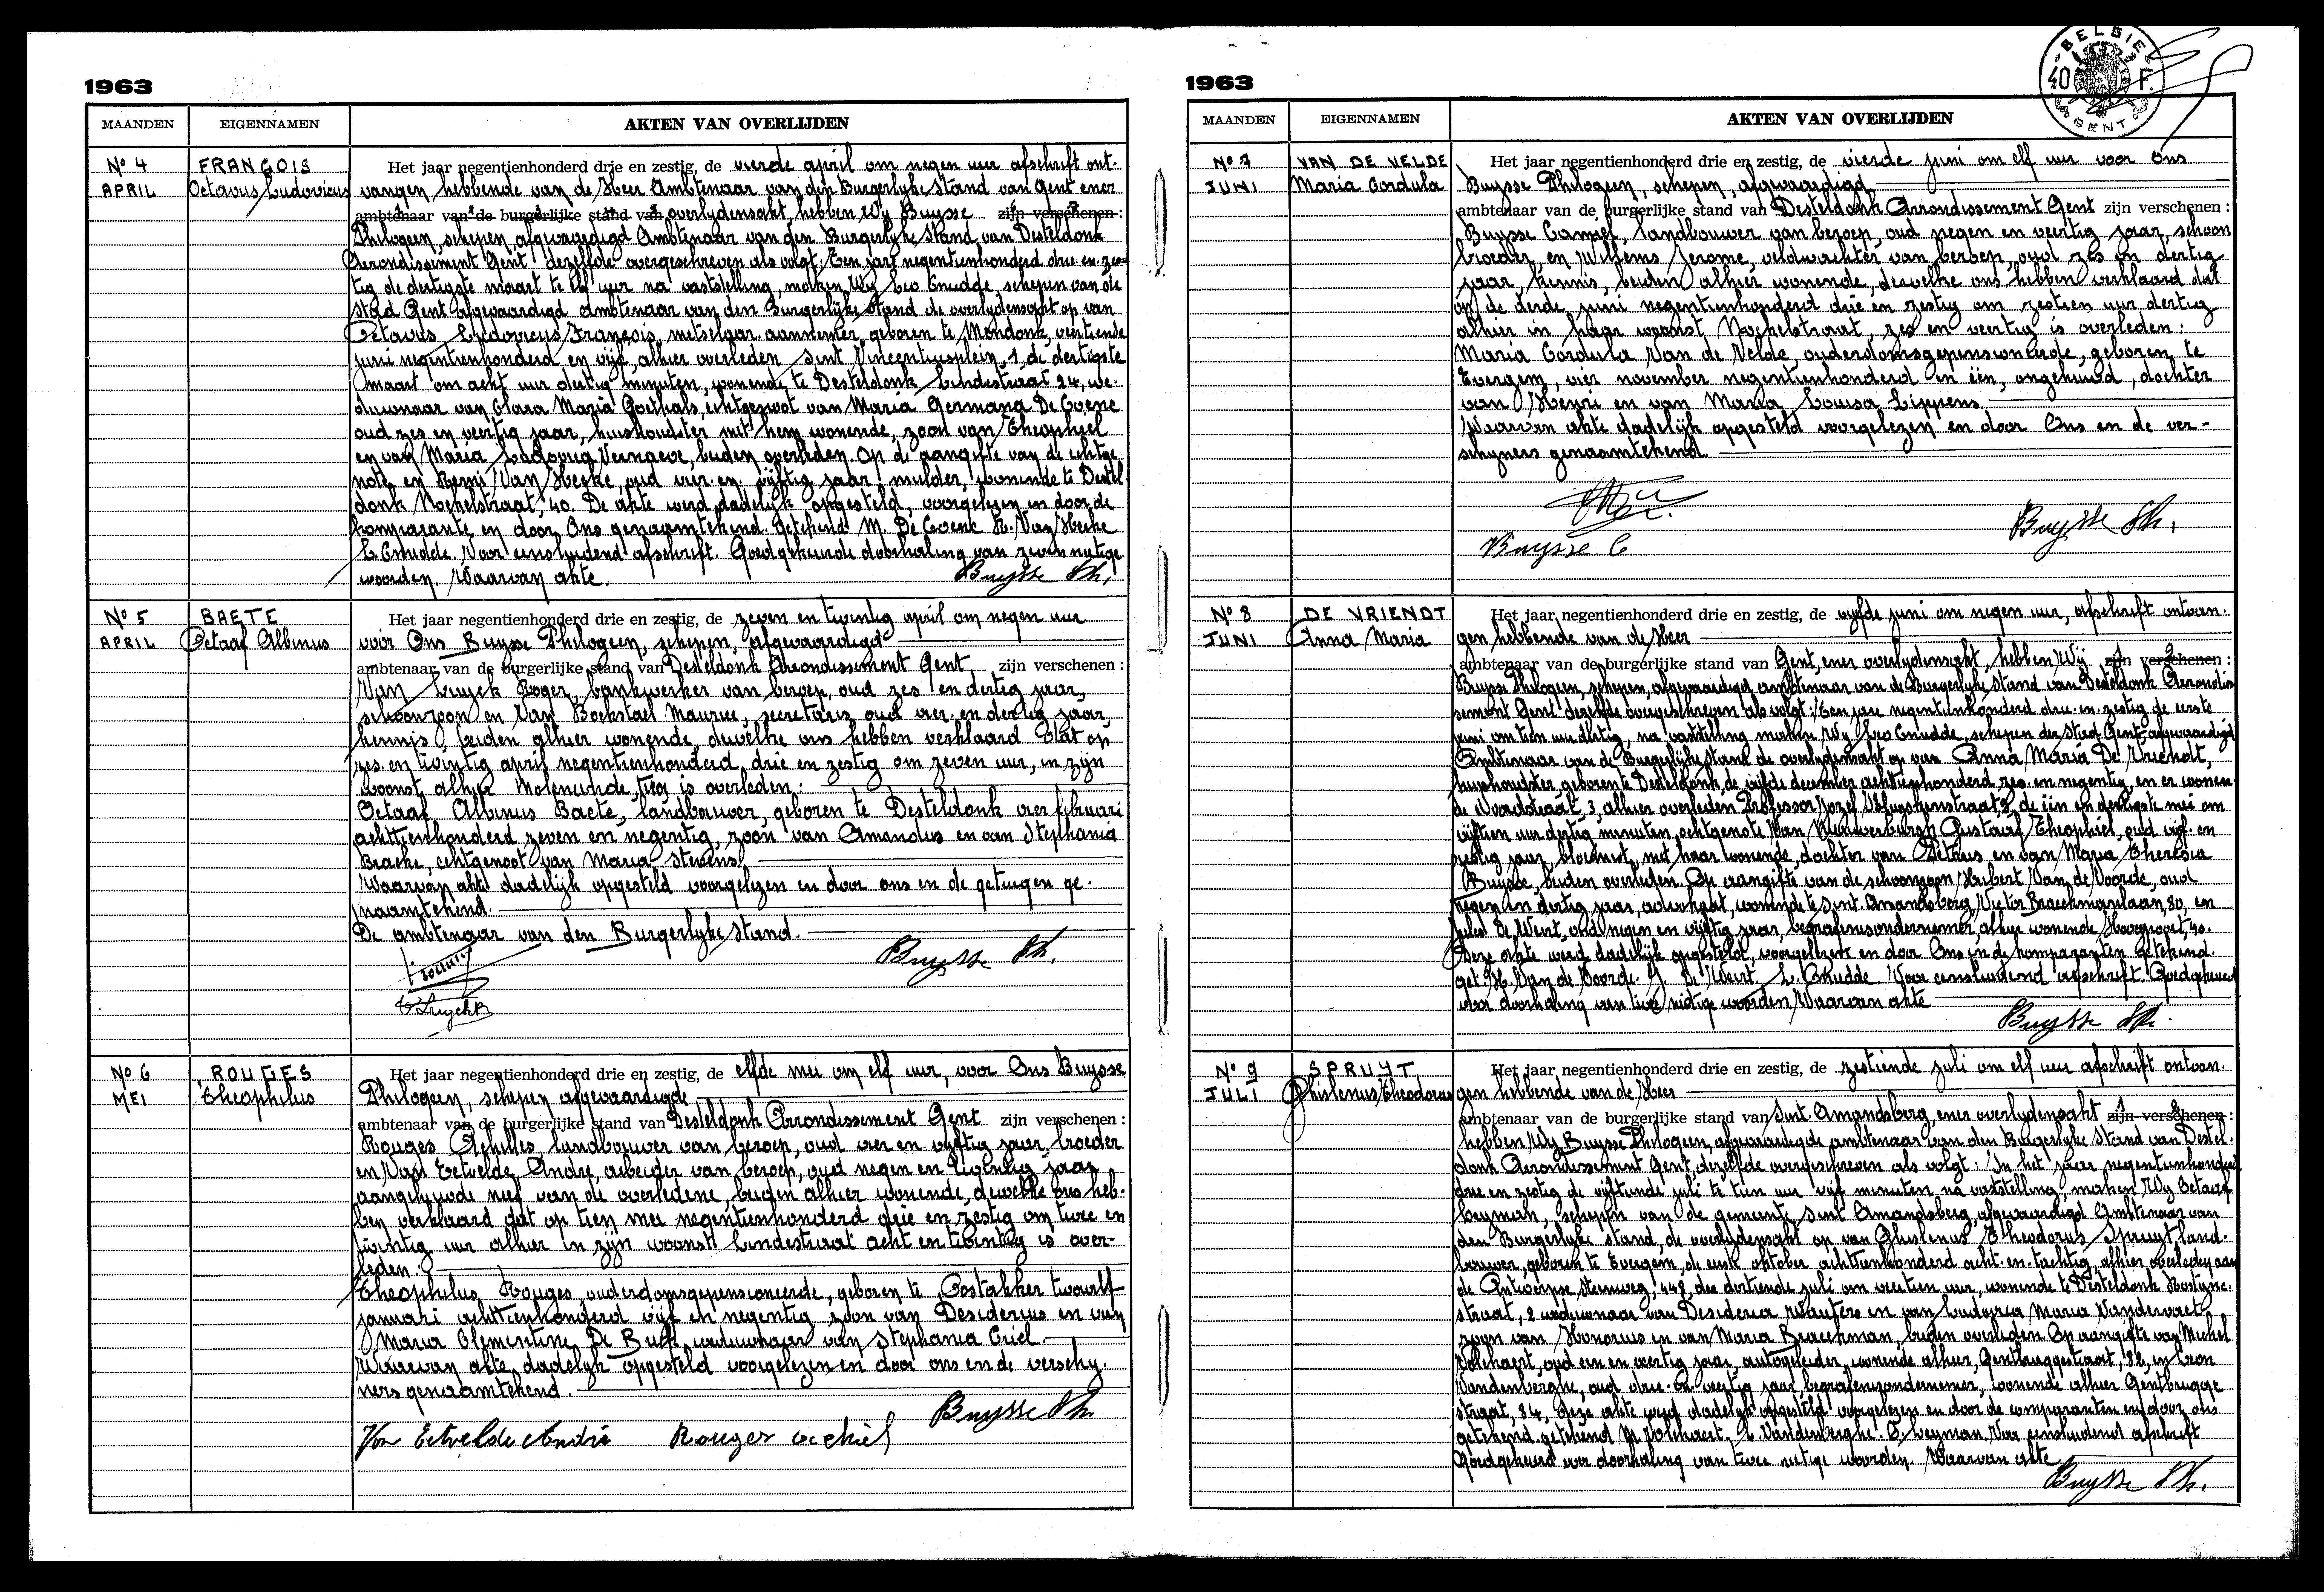 1963
MAANDEN EIGENNAMEN AKTEN VAN OVERLIJDEN
No 4 FRANÇOIS Het jaar negentienhonderd drie en zestig, de vierde april om negen uur afschrift ont-
APRIL Octavus Ludovicus vangen hebbende van de Heer Ambtenaar van den Burgerlyke Stand van Gent ener
ambtenaar van de burgerlijke stand van overlydensakt, hebben Wy Buysse zijn verschenen :
Philogeen, schepen, afgevaardigd Ambtenaar van den Burgerlyke Stand van Desteldonk
Arrondissement Gent dezelfde overgeschreven als volgt: Een jaar negentienhonderd drie en zes-
tig de dertigste maart te elf uur na vaststelling, maken Wy Leo Cnudde, schepen van de
stad Gent afgevaardigd ambtenaar van den Burgerlijke Stand de overlydensakt op van
Octavus Ludovicus François, metselaar aannemer, geboren te Mendonk, veertiende
juni negentienhonderd en vijf, alhier overleden Sint Vincentiusplein, 1, de dertigste
maart om acht uur dertig minuten, wonende te Desteldonk Lindestraat 24, we-
duwnaar van Clara Maria Goethals, echtgenoot van Maria Germana De Coene
oud zes en veertig jaar, huishoudster met hem wonende, zoon van Theophiel
en van Maria Ludovica Vervaeve, beiden overleden. Op de aangifte van de echtge-
note en Remi Van Hecke, oud vier en vijftig jaar, mulder, wonende te Destel-
donk Mochelstraat, 40. De akte werd dadelijk opgesteld, voorgelezen en door de
komparante en door Ons genaamtekend. Getekend M. De Coene R. Van Hecke
L. Cnudde. Voor eensluidend afschrift. Goedgekeurde doorhaling van zeven nietige
woorden. Waarvan akte. Buysse Ph.
No 5 BAETE Het jaar negentienhonderd drie en zestig, de zeven en twintig april om negen uur
APRIL Octaaf Albinus voor Ons Buysse Philogeen, schepen, afgevaardigd
ambtenaar van de burgerlijke stand van Desteldonk Arrondissement Gent zijn verschenen :
Van Luyck Roger, bankwerker van beroep, oud zes en dertig jaar,
schoonzoon en Van Bockstael Maurice, secretaris oud vier en dertig jaar,
kennis, beiden alhier wonende, dewelke ons hebben verklaard dat op
zes en twintig april negentienhonderd drie en zestig om zeven uur, in zijn
woonst alhier Moleneinde, is overleden :
Octaaf Albinus Baete, landbouwer, geboren te Desteldonk vier februari
achttienhonderd zeven en negentig, zoon van Amandus en van Stephania
Braeke, echtgenoot van Maria Stevens.
Waarvan akte dadelijk opgesteld voorgelezen en door ons en de getuigen ge-
naamtekend.
De ambtenaar van den Burgerlyke stand.
Buysse Ph.
No 6 ROUGES Het jaar negentienhonderd drie en zestig, de elfde mei om elf uur, voor Ons Buysse
MEI Theophilus Philogeen, schepen afgevaardigde
ambtenaar van de burgerlijke stand van Desteldonk Arrondissement Gent zijn verschenen :
Rouges Achilles, landbouwer van beroep, oud vier en vijftig jaar, broeder
en Van Eetvelde Andre, arbeider van beroep, oud negen en twintig jaar
aangehuwde neef van de overledene, beiden alhier wonende, dewelke ons heb-
ben verklaard dat op tien mei negentienhonderd drie en zestig om twee en
twintig uur alhier in zijn woonst Lindestraat acht en twintig is over-
leden :
Theophilus Rouges, ouderdomsgepensioneerde, geboren te Oostakker twaalf
januari achttienhonderd vijf en negentig zoon van Desiderius en van
Maria Clementine De Buck weduwnaar van Stephania Criel.
Waarvan akte dadelijk opgesteld voorgelezen en door ons en de verschy-
ners genaamtekend.
Buysse Ph.
Van Eetvelde André Rouges Achiel
1963
BELGIE 40 F. GENT
MAANDEN EIGENNAMEN AKTEN VAN OVERLIJDEN
No 7 VAN DE VELDE Het jaar negentienhonderd drie en zestig, de vierde juni om elf uur voor Ons
JUNI Maria Cordula Buysse Philogeen, schepen, afgevaardigd
ambtenaar van de burgerlijke stand van Desteldonk Arrondissement Gent zijn verschenen :
Buysse Camiel, landbouwer van beroep, oud negen en veertig jaar, schoon
broeder, en Willems Jerome, veldwachter van beroep, oud zes en dertig
jaar, kennis, beiden alhier wonende, dewelke ons hebben verklaard dat
op de derde juni negentienhonderd drie en zestig om zestien uur dertig
alhier in haar woonst Mochelstraat, zes en veertig is overleden :
Maria Cordula Van de Velde, ouderdomsgepensioneerde, geboren te
Evergem, vier november negentienhonderd en één, ongehuwd, dochter
van Henri en van Maria Louisa Lippens.
Waarvan akte dadelijk opgesteld voorgelezen en door Ons en de ver-
schyners genaamtekend.
Buysse Ph.
Buysse C
No 8 DE VRIENDT Het jaar negentienhonderd drie en zestig, de vyfde juni om negen uur, afschrift ontvan-
JUNI Anna Maria gen hebbende van de Heer
ambtenaar van de burgerlijke stand van Gent, ener overlydensakt, hebben Wij zijn verschenen :
Buysse Philogeen, schepen, afgevaardigd ambtenaar van de Burgerlyke Stand van Desteldonk Arrondis-
sement Gent dezelfde overgeschreven als volgt: Een jaar negentienhonderd drie en zestig de eerste
juni om tien uur dertig, na vaststelling maken Wy Leo Cnudde, schepen der Stad Gent, afgevaardigd
Ambtenaar van de Burgerlijke Stand de overlydensakt op van Anna Maria De Vriendt,
huishoudster geboren te Desteldonk, de vijfde december achttienhonderd zes en negentig, en er wonen-
de Woordstraat, 3, alhier overleden Professor Jozef Guislainstraat, de één en dertigste mei om
vijftien uur dertig minuten, echtgenote Van Nieuwerburgh Gustaaf Theophiel, oud vijf en
zestig jaar, bloemist, met haar wonende, dochter van Petrus en van Maria Theresia
Buysse, beiden overleden. Op aangifte van de schoonzoon Hubert Van de Voorde, oud
negen en dertig jaar, advokaat, wonende te Sint Amandsberg, Victor Braeckmanlaan, 80, en
Jules De Weirt, oud negen en vijftig jaar, begrafenisondernemer, alhier wonende Hoogpoort, 40.
Deze akte werd dadelijk opgesteld, voorgelezen en door Ons en de komparanten getekend.
get. H. Van de Voorde. J. De Weirt. L. Cnudde. Voor eensluidend afschrift. Goedgekeurd
voor doorhaling van twee nietige woorden, Waarvan akte
Buysse Ph.
No 9 SPRUYT Het jaar negentienhonderd drie en zestig, de zestiende juli om elf uur afschrift ontvan-
JULI Ghislenus Theodorus gen hebbende van de Heer
ambtenaar van de burgerlijke stand van Sint Amandsberg, ener overlydensakt zijn verschenen :
hebben Wy Buysse Philogeen, afgevaardigde ambtenaar van den Burgerlyke Stand van Destel-
donk Arrondissement Gent, dezelfde overgeschreven als volgt: In het jaar negentienhonderd
drie en zestig de vijftiende juli te tien uur vijf minuten na vaststelling, maken Wy Octaaf
Leyman, schepen van de gemeente Sint Amandsberg, afgevaardigd ambtenaar van
den Burgerlyke stand, de overlydensakt op van Ghislenus Theodorus Spruyt land-
bouwer, geboren te Evergem, de eerste oktober achttienhonderd acht en tachtig, alhier overleden aan
de Antwerpse Steenweg, de dertiende juli om veertien uur, wonende te Desteldonk
straat, 2 weduwnaar van Desideria Wauters en van Ludovica Maria Vandervaet
zoon van Honorius en van Maria Braeckman, beiden overleden Op aangifte van Michel
Polchaert, oud een en veertig jaar, autogeleider, wonende alhier, Gentbruggestraat, 82, en Leon
Vandenberghe, oud drie en veertig jaar, begrafenisondernemer, wonende alhier Gentbrugge
straat, 84, deze akte werd dadelijk opgesteld voorgelezen en door de comparanten en door ons
getekend. getekend M. Polchaert. L. Vandenberghe. O. Leyman. Voor eensluidend afschrift
Goedgekeurd voor doorhaling van twee nietige woorden. Waarvan akte
Buysse Ph.